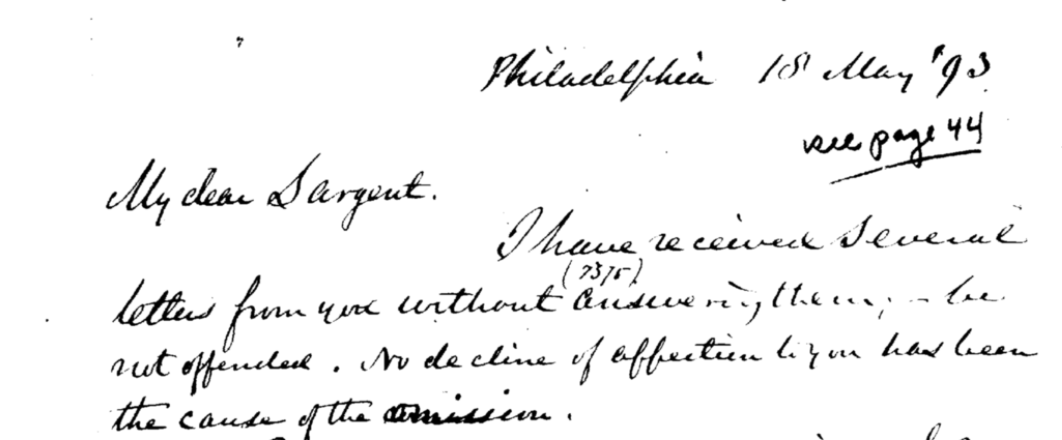 Philadelphia 18 May '93
see page 44
My dear Sargent.
I have received several
(7375)
letters from you without answering them; - be
not offended. No decline of affection to you has been
the cause of the omission.